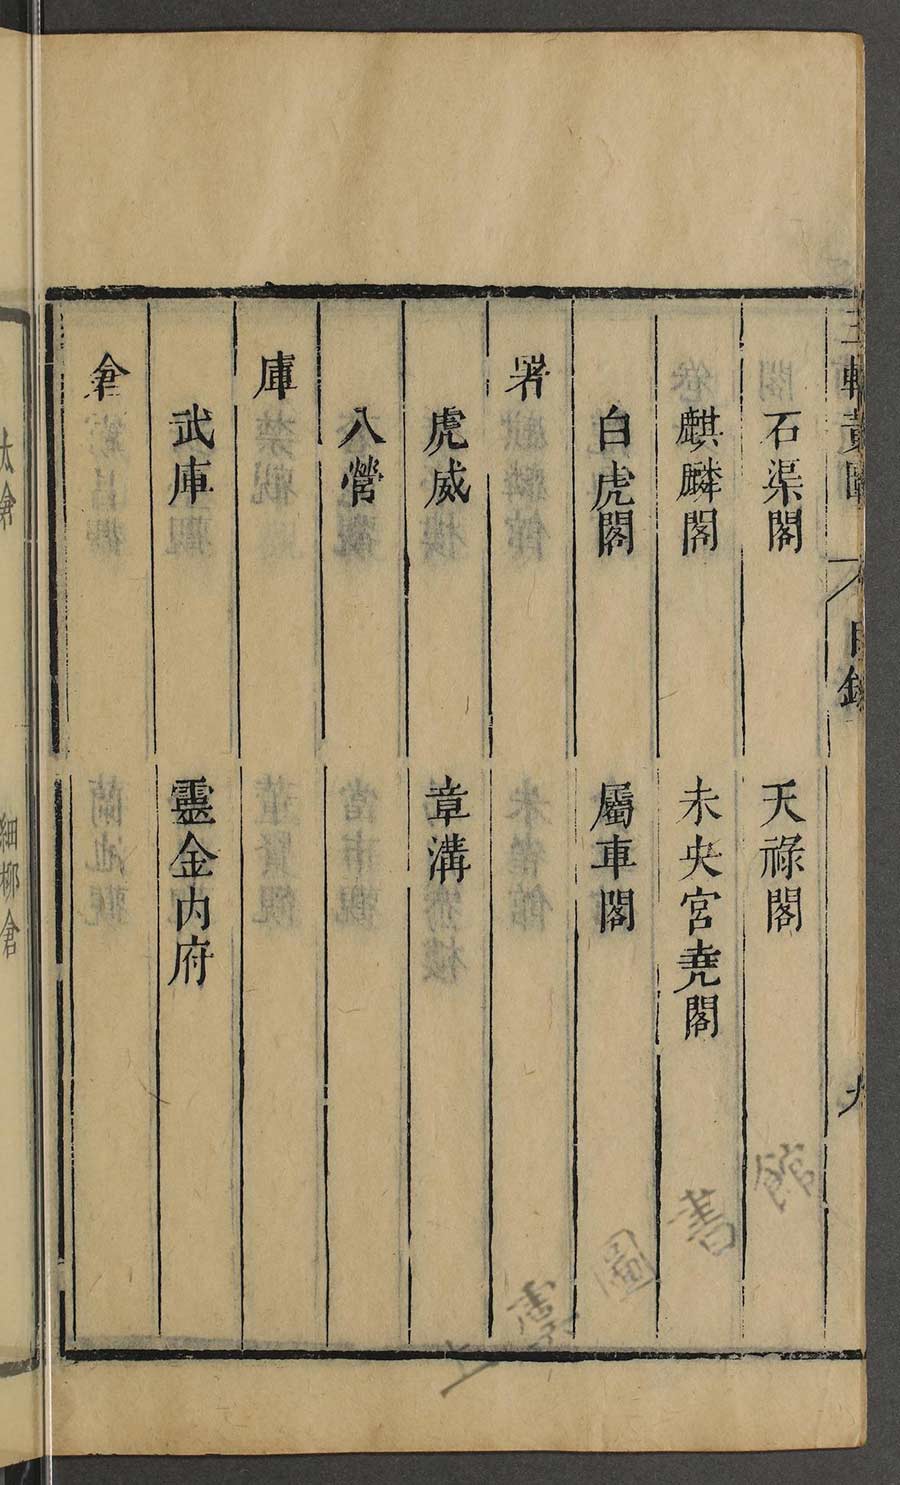 三輔黃圖 目錄 九
石渠閣 天祿閣
麒麟閣 未央宮堯閣
白虎閣 屬車閣
署
虎威 章溝
八營
庫
武庫 靈金內府
倉
太倉 細柳倉
上雲圖書館